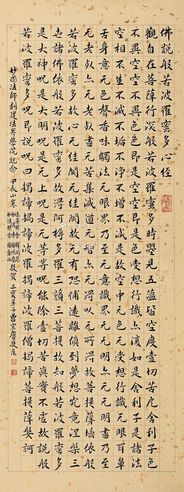 佛說般若波羅蜜多心經
觀自在菩薩行深般若波羅蜜多時照見五蘊皆空度一切苦厄舍利子色
不異空空不異色色即是空空即是色受想行識亦復如是舍利子是諸法
空相不生不滅不垢不淨不增不減是故空中无色无受想行識无眼耳鼻
舌身意无色聲香味觸法无眼界乃至无意識界无无明亦无无明盡乃至
无老死亦无老死盡无苦集滅道无智亦无得以无所得故菩提薩埵依般
若波羅蜜多故心无罣礙无罣礙故无有恐怖遠離顛倒夢想究竟涅槃三
世諸佛依般若波羅蜜多故得阿耨多羅三藐三菩提故知般若波羅蜜多
是大神咒是大明咒是无上咒是无等等咒能除一切苦真實不虛故說般
若波羅蜜多咒即說咒曰揭諦揭諦波羅揭諦波羅僧揭諦菩提薩婆訶
法師創建法界學院紀念